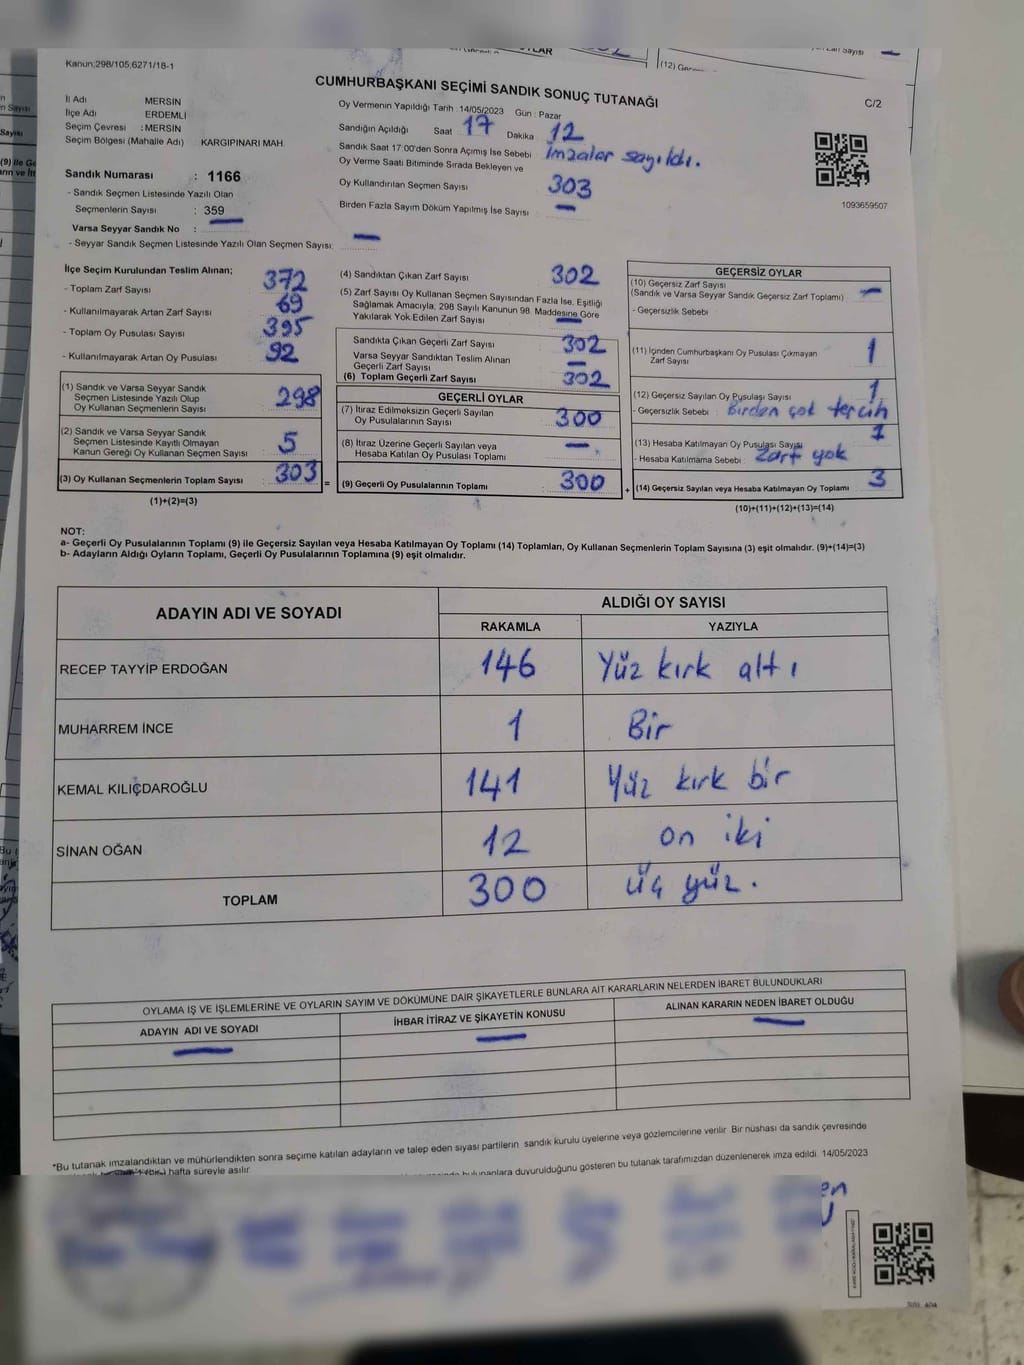 Kanun;298/105;6271/18-1
CUMHURBAŞKANI SEÇİMİ SANDIK SONUÇ TUTANAĞI
C/2
İl Adı MERSİN
İlçe Adı ERDEMLİ
Seçim Çevresi : MERSİN
Seçim Bölgesi (Mahalle Adı) KARGIPINARI MAH.
Sandık Numarası : 1166
- Sandık Seçmen Listesinde Yazılı Olan
Seçmenlerin Sayısı : 359
Varsa Seyyar Sandık No :
- Seyyar Sandık Seçmen Listesinde Yazılı Olan Seçmen Sayısı: —
Oy Vermenin Yapıldığı Tarih :14/05/2023 Gün : Pazar
Sandığın Açıldığı Saat 17 Dakika 12
Sandık Saat 17:00'den Sonra Açımış İse Sebebi imzalar sayıldı.
Oy Verme Saati Bitiminde Sırada Bekleyen ve
Oy Kullandırılan Seçmen Sayısı 303
Birden Fazla Sayım Döküm Yapılmış İse Sayısı —
1093659507
İlçe Seçim Kurulundan Teslim Alınan;
- Toplam Zarf Sayısı 372
- Kullanılmayarak Artan Zarf Sayısı 69
- Toplam Oy Pusulası Sayısı 395
- Kullanılmayarak Artan Oy Pusulası 92
(1) Sandık ve Varsa Seyyar Sandık
Seçmen Listesinde Yazılı Olup
Oy Kullanan Seçmenlerin Sayısı 298
(2) Sandık ve Varsa Seyyar Sandık
Seçmen Listesinde Kayıtlı Olmayan
Kanun Gereği Oy Kullanan Seçmen Sayısı 5
(3) Oy Kullanan Seçmenlerin Toplam Sayısı 303 =
(1)+(2)=(3)
(4) Sandıktan Çıkan Zarf Sayısı 302
(5) Zarf Sayısı Oy Kullanan Seçmen Sayısından Fazla İse, Eşitliği
Sağlamak Amacıyla, 298 Sayılı Kanunun 98. Maddesine Göre
Yakılarak Yok Edilen Zarf Sayısı —
Sandıkta Çıkan Geçerli Zarf Sayısı 302
Varsa Seyyar Sandıktan Teslim Alınan
Geçerli Zarf Sayısı —
(6) Toplam Geçerli Zarf Sayısı 302
GEÇERLİ OYLAR
(7) İtiraz Edilmeksizin Geçerli Sayılan
Oy Pusulalarının Sayısı 300
(8) İtiraz Üzerine Geçerli Sayılan veya
Hesaba Katılan Oy Pusulası Toplamı —
(9) Geçerli Oy Pusulalarının Toplamı 300 +
GEÇERSİZ OYLAR
(10) Geçersiz Zarf Sayısı —
(Sandık ve Varsa Seyyar Sandık Geçersiz Zarf Toplamı)
- Geçersizlik Sebebi
(11) İçinden Cumhurbaşkanı Oy Pusulası Çıkmayan
Zarf Sayısı 1
(12) Geçersiz Sayılan Oy Pusulası Sayısı 1
- Geçersizlik Sebebi : Birden çok tercih
(13) Hesaba Katılmayan Oy Pusulası Sayısı 1
- Hesaba Katılmama Sebebi : Zarf yok
(14) Geçersiz Sayılan veya Hesaba Katılmayan Oy Toplamı 3
(10)+(11)+(12)+(13)=(14)
NOT:
a- Geçerli Oy Pusulalarının Toplamı (9) ile Geçersiz Sayılan veya Hesaba Katılmayan Oy Toplamı (14) Toplamları, Oy Kullanan Seçmenlerin Toplam Sayısına (3) eşit olmalıdır. (9)+(14)=(3)
b- Adayların Aldığı Oyların Toplamı, Geçerli Oy Pusulalarının Toplamına (9) eşit olmalıdır.
ADAYIN ADI VE SOYADI ALDIĞI OY SAYISI
RAKAMLA YAZIYLA
RECEP TAYYİP ERDOĞAN 146 Yüz kırk altı
MUHARREM İNCE 1 Bir
KEMAL KILIÇDAROĞLU 141 Yüz kırk bir
SİNAN OĞAN 12 on iki
TOPLAM 300 üç yüz.
OYLAMA İŞ VE İŞLEMLERİNE VE OYLARIN SAYIM VE DÖKÜMÜNE DAİR ŞİKAYETLERLE BUNLARA AİT KARARLARIN NELERDEN İBARET BULUNDUKLARI
ADAYIN ADI VE SOYADI İHBAR İTİRAZ VE ŞİKAYETİN KONUSU ALINAN KARARIN NEDEN İBARET OLDUĞU
— — —
*Bu tutanak imzalandıktan ve mühürlendikten sonra seçime katılan adayların ve talep eden siyasi partilerin sandık kurulu üyelerine veya gözlemcilerine verilir. Bir nüshası da sandık çevresinde
hafta süreyle asılır. bulunanlara duyurulduğunu gösteren bu tutanak tarafımızdan düzenlenerek imza edildi. 14/05/2023